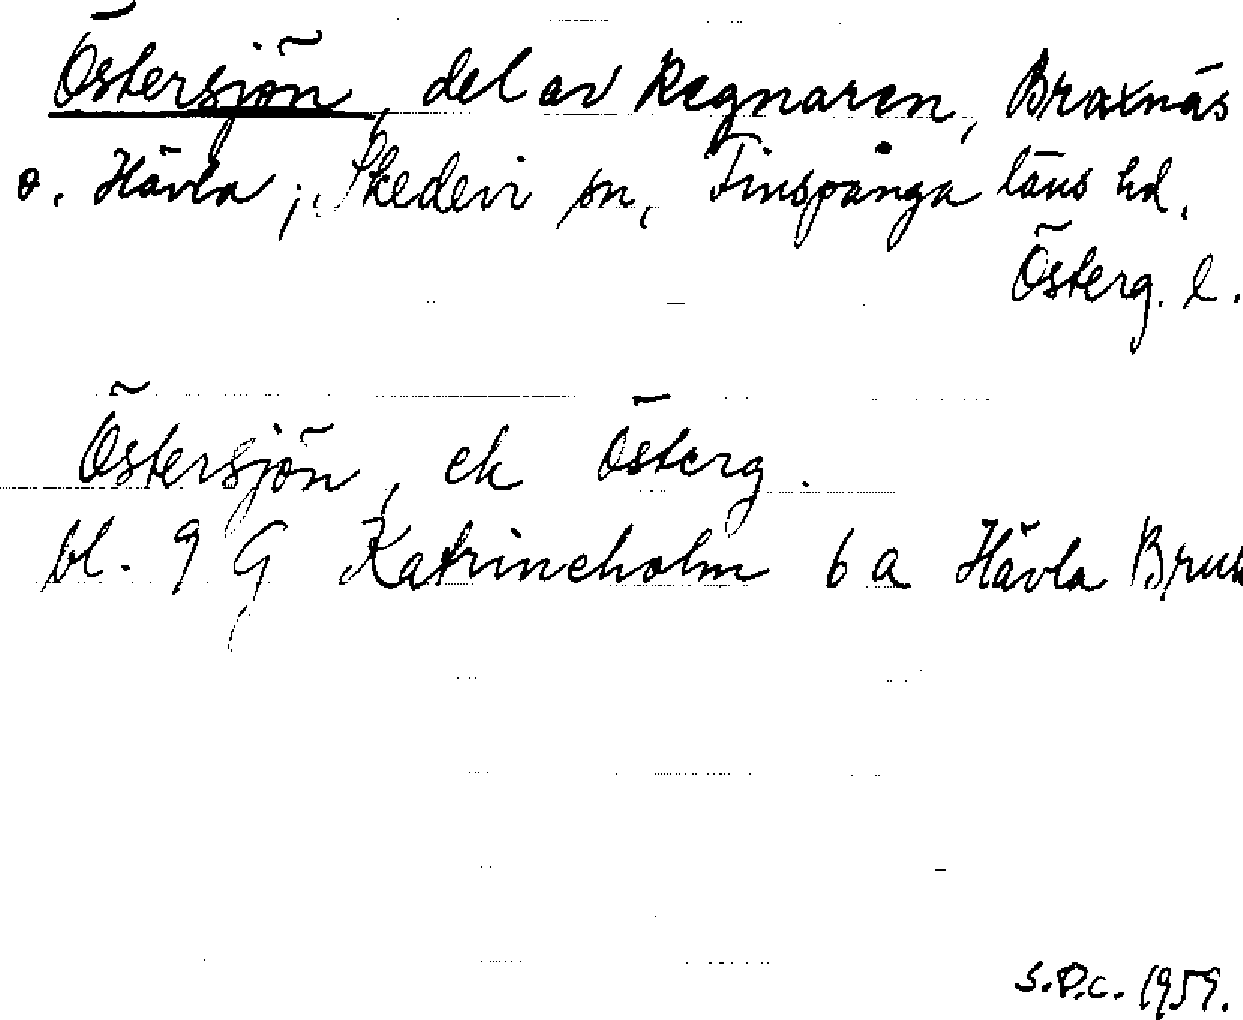 Östersjön, del av Regnaren, Braxnäs
o. Hävla; Skedevi sn, Finspånga läns hd.
Österg. l.
Östersjön, ek Österg.
bl. 9 G Katrineholm 6 a Hävla Bruk
S.P.C. 1959.